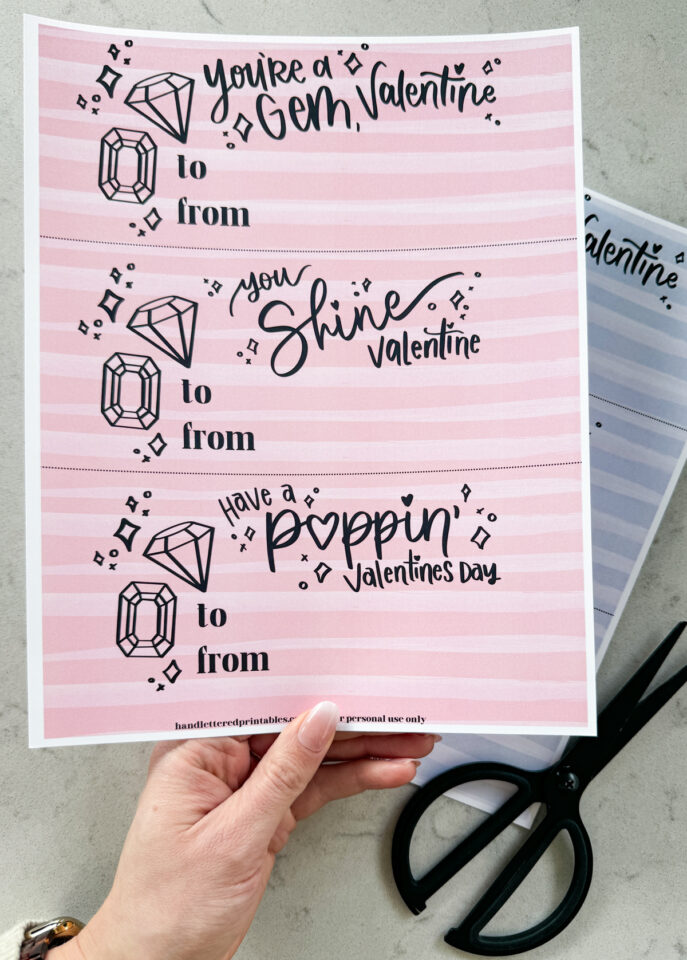 You're a
Gem, Valentine
to
from
you
Shine
Valentine
to
from
Have a
poppin'
Valentines Day
to
from
handletteredprintables.c r personal use only
Valentine